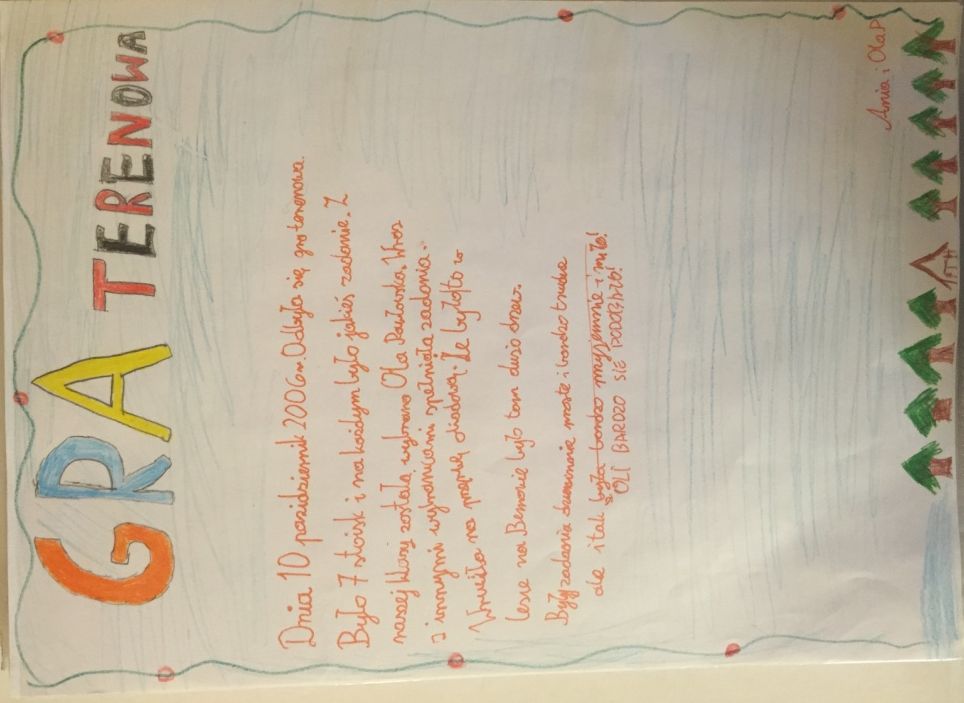 GRA TERENOWA
Dnia 10 pazidziernik 2006r. Odbyła się gra terenowa.
Było 7 stoisk i na każdym było jakieś zadanie. Z
naszej klasy została wybrana Ola Pawłowska. Wraz
z innymi wybrańcami spełniała zadania.
na Że było to w
lesie na Bemowie było tam dużo drzew.
Były zadania proste i bardzo trudne
ale i tak było bardzo przyjemnie i miło!
OLI BARDZO SIĘ PODOBAŁO!
Ania i Ola P